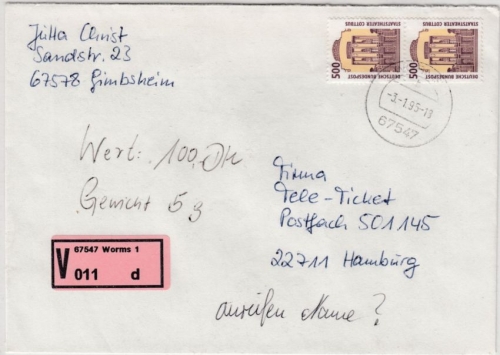 Jutta Christ
Sandstr. 23
67578 Gimbsheim
500
DEUTSCHE BUNDESPOST
STAATSTHEATER COTTBUS
500
DEUTSCHE BUNDESPOST
STAATSTHEATER COTTBUS
-3.-1.95-18
67547
Wert: 100,- DM
Gewicht 5 g
Firma
Tele-Ticket
Postfach 501145
22711 Hamburg
V
67547 Worms 1
011 d
Name?